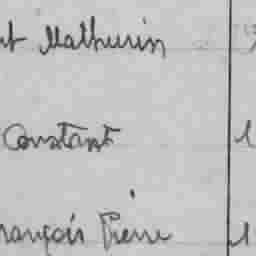 Mathurin
Constant
François Pierre